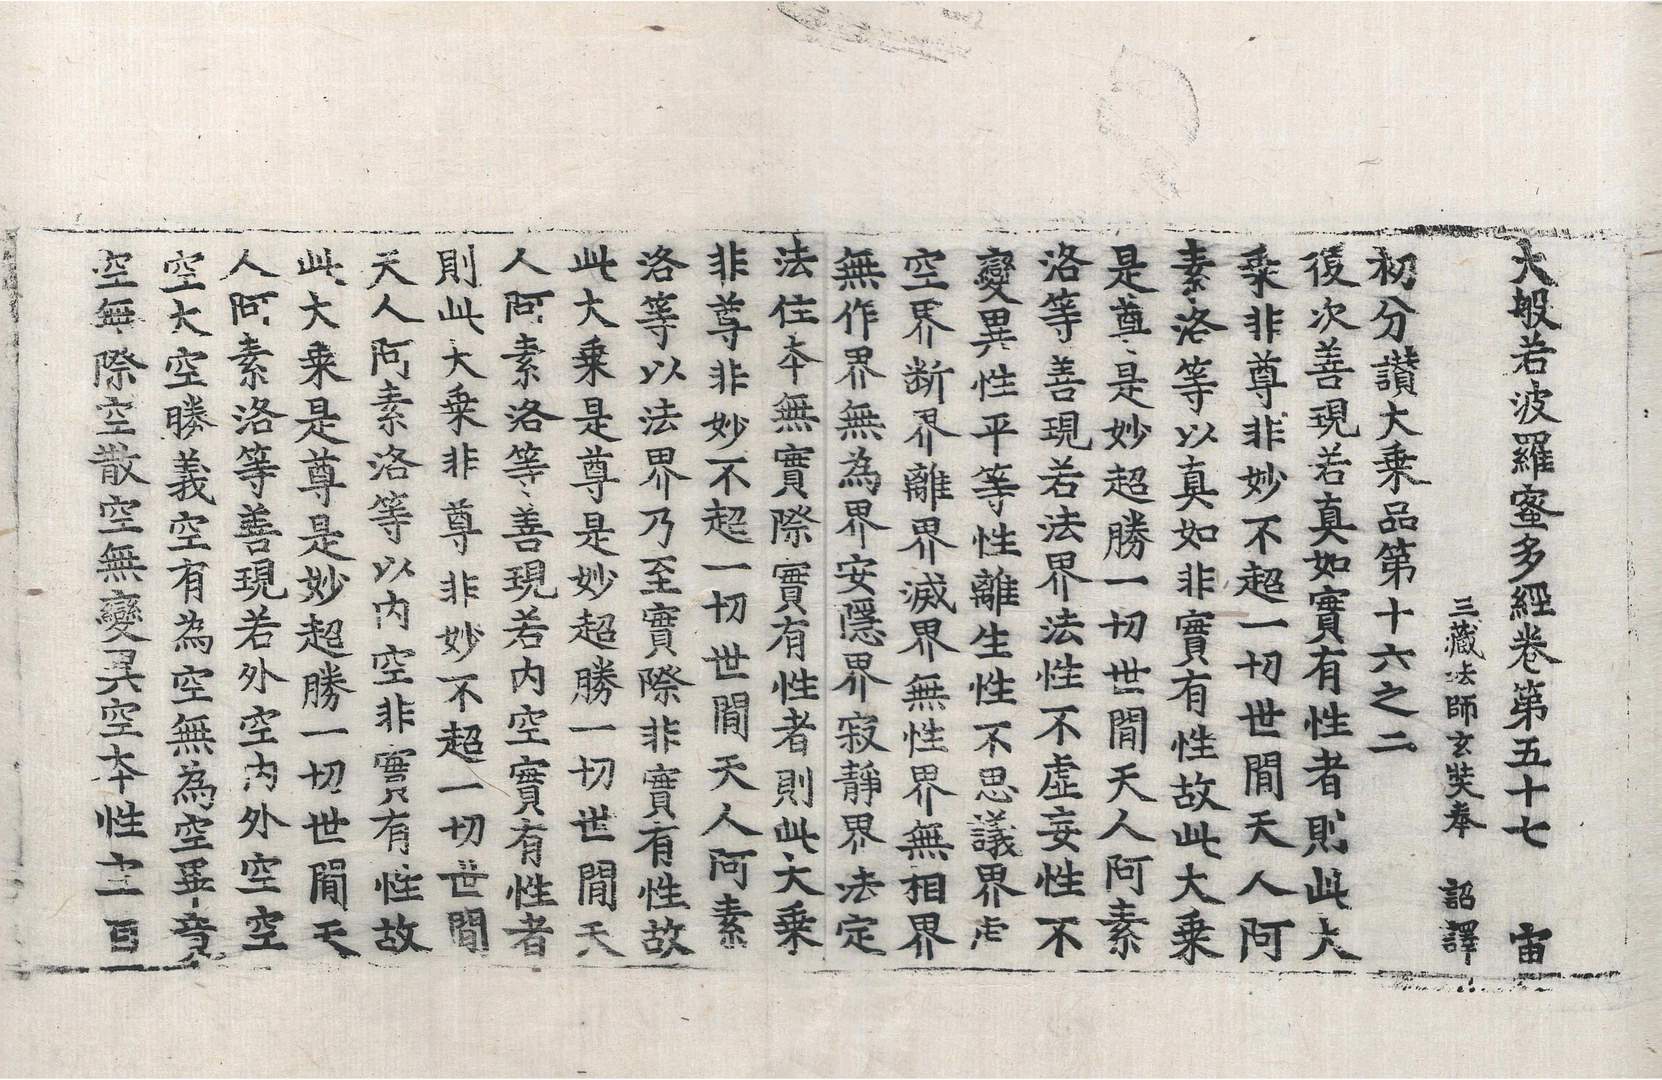 大般若波羅蜜多經卷第五十七　宙
三藏法師玄奘奉　詔譯
初分讃大乗品第十六之二
復次善現若真如實有性者則此大
乗非尊非妙不超一切世間天人阿
素洛等以真如非實有性故此大乗
是尊是妙超勝一切世間天人阿素
洛等善現若法界法性不虛妄性不
變異性平等性離生性不思議界虛
空界断界離界滅界無性界無相界
無作界無為界安隱界寂靜界法定
法住本無實際實有性者則此大乗
非尊非妙不超一切世間天人阿素
洛等以法界乃至實際非實有性故
此大乗是尊是妙超勝一切世間天
人阿素洛等善現若内空實有性者
則此大乗非尊非妙不超一切世間
天人阿素洛等以内空非實有性故
此大乗是尊是妙超勝一切世間天
人阿素洛等善現若外空内外空空
空大空勝義空有為空無為空畢竟
空無際空散空無變異空本性空自